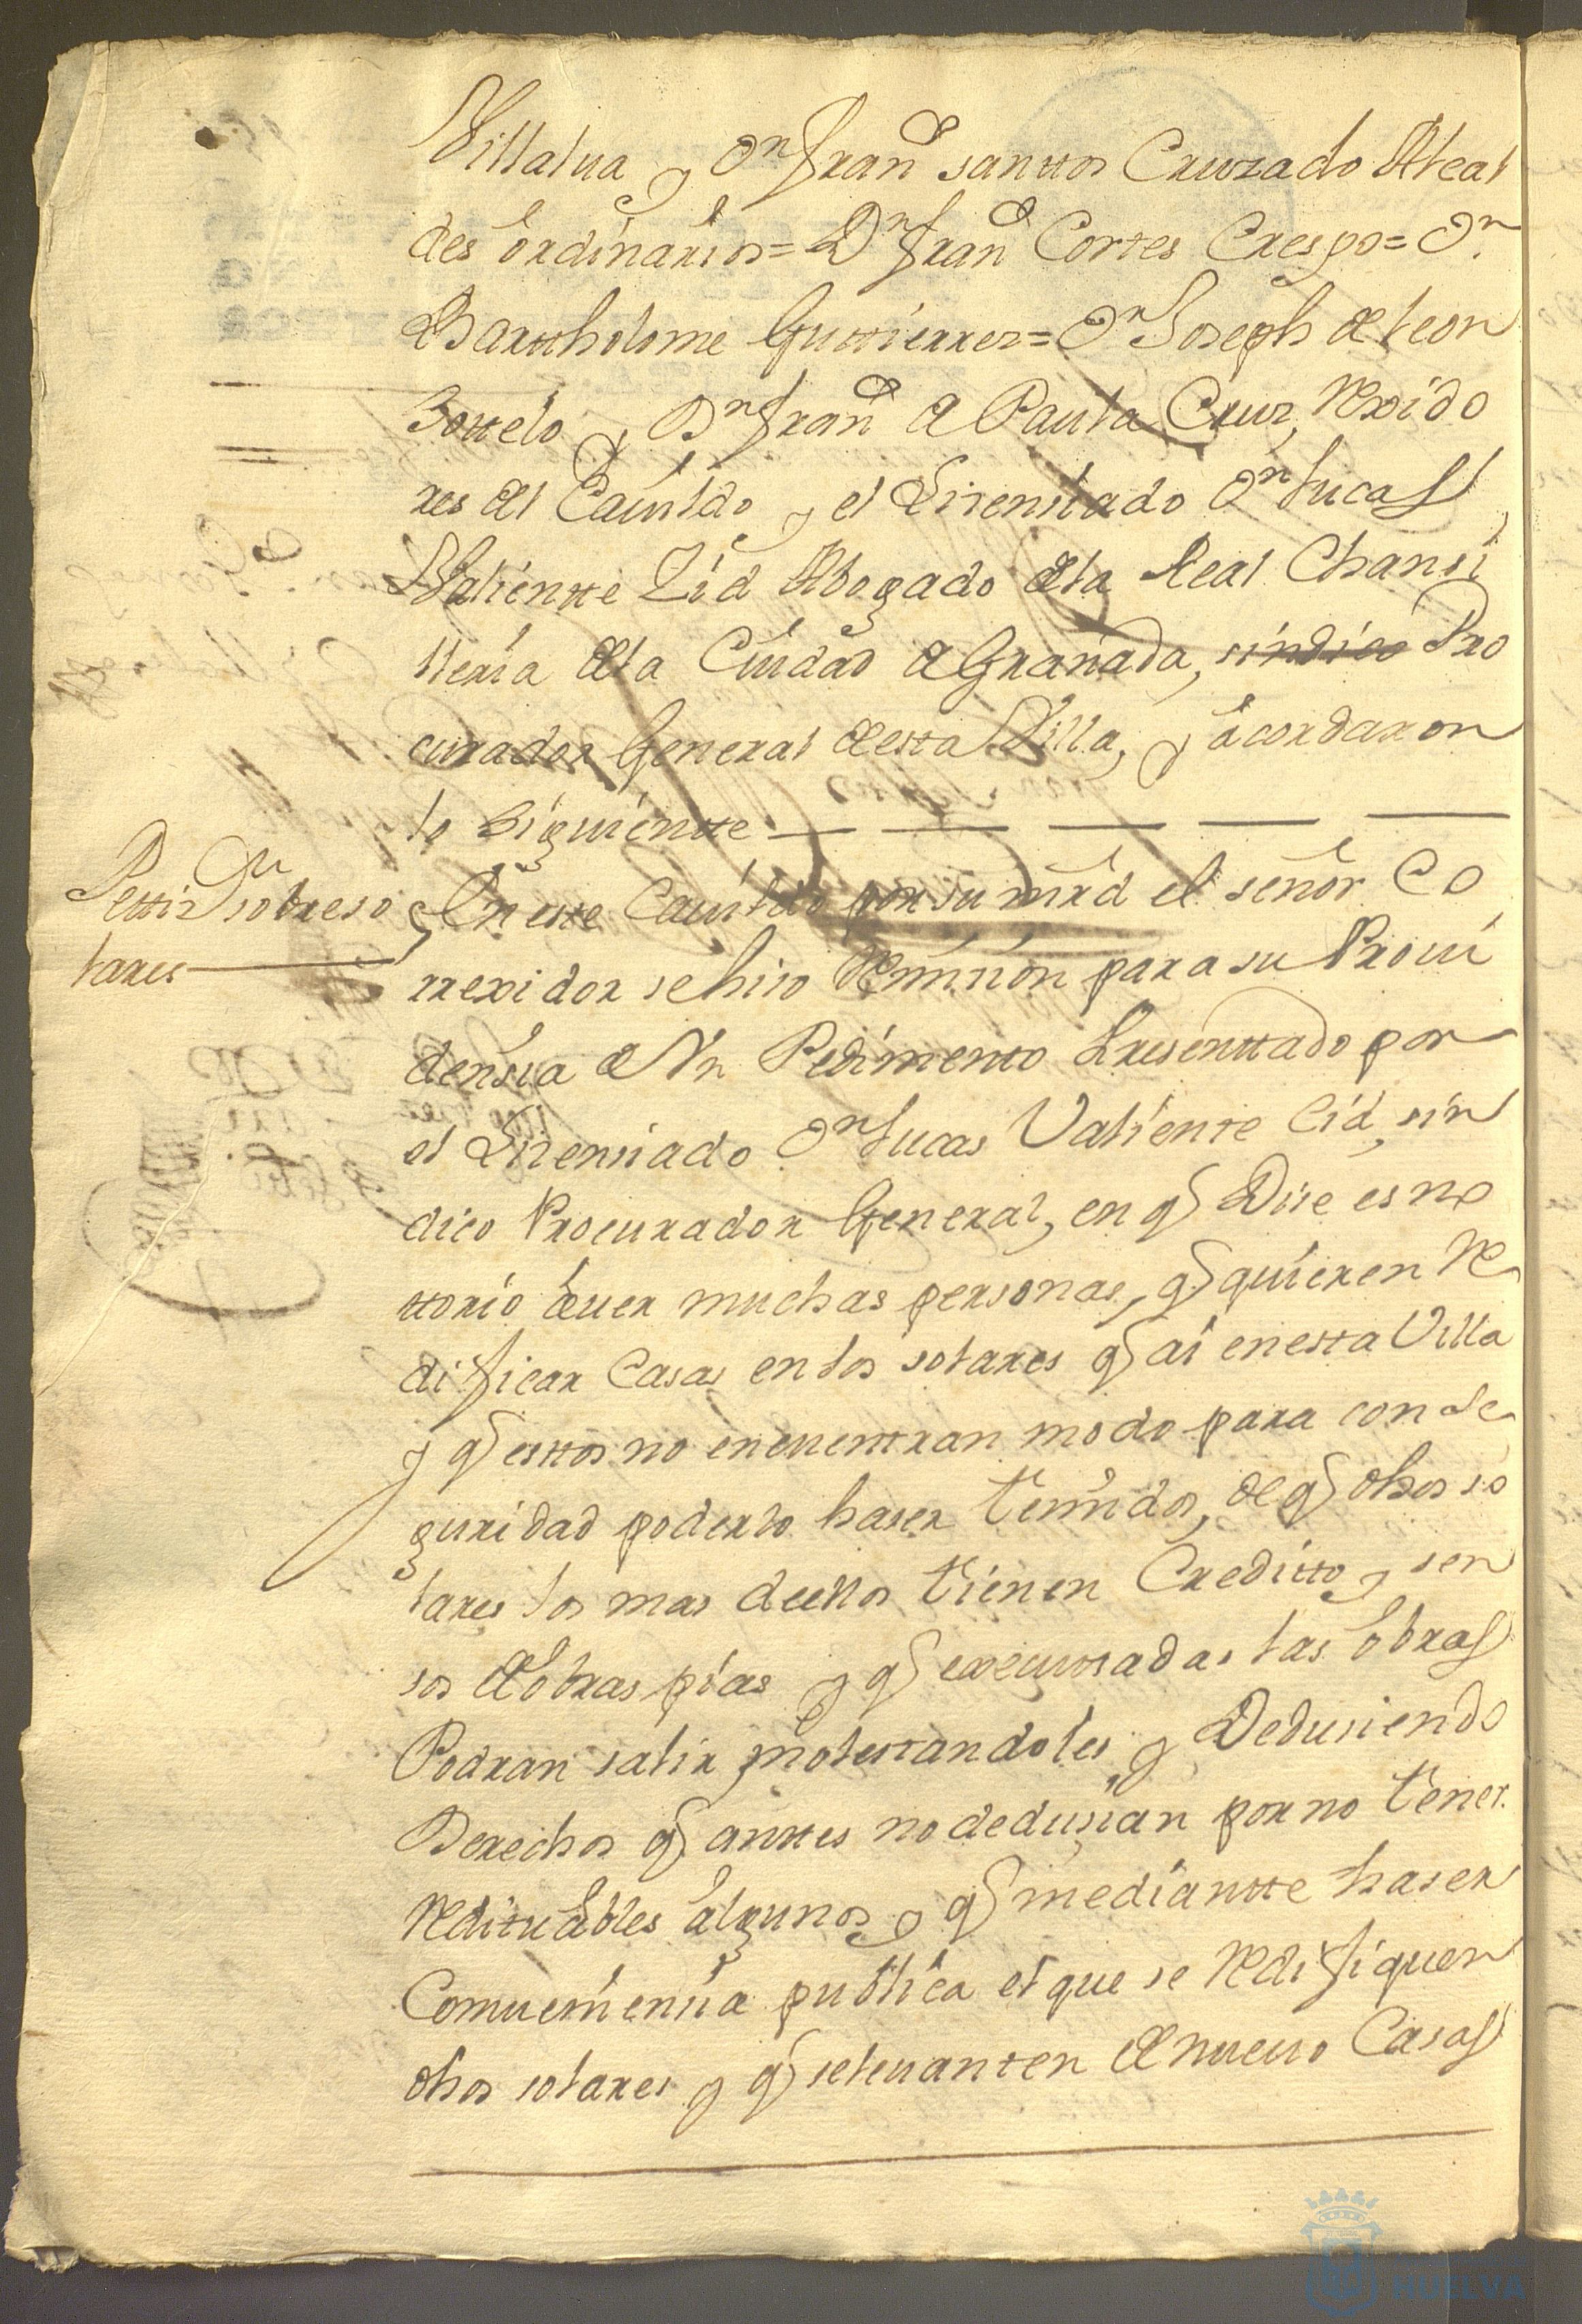 Villalua y Dn Franco santtos Cruzado Alcal
des ordinarios= Dn Franco Cortes Crespo= Dn
Barttholome Guttierrez= Dn Joseph de leon
Sottelo y Dn Franco de Paula Cruz, Rexido
res del Cauildo y el Lizenciado Dn lucas
Valientte Zid Abogado de la Real Chansi
lleria de la Ciudad de Granada, sindico Pro
curador General desta Villa, y acordaron
lo siguientte
Pettizon sobre so
lares
En este Cauildo por su mrd el señor Co
rrexidor se hizo Remision para su Proui
densia de Vn Pedimento Presenttado por
el Lizensiado Dn lucas Valiente Cid, sin
dico Procurador General, en q Dize es no
ttorio auer muchas personas, q quieren Re
dificar Casas en los solares q ai en esta Villa
y q esttos no encuentran modo para con se
guridad poderlo haser temidos, de q dhos so
lares los mas de ellos tienen Creditto y sen
sos de obras pias y q executtadas las obras
Podran salir molestandoles y Dedusiendo
Derechos q anttes no dedusian por no tener
Redituables algunos y q mediantte haser
Comueniensia publica el que se Redifiquen
dhos solares y q se leuanten de nueuo Casas
HUELVA